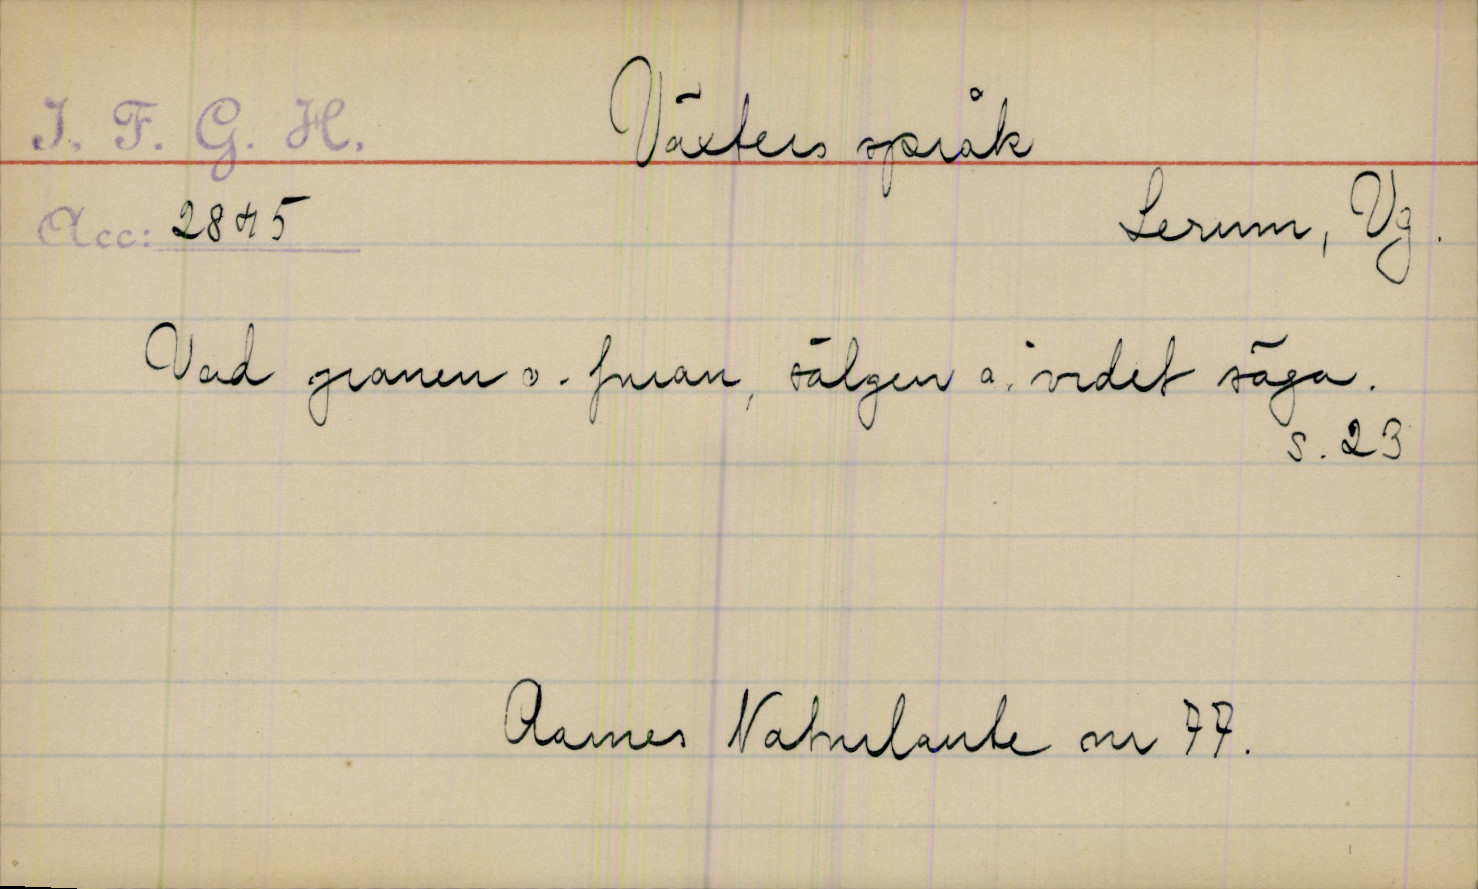 I. F. G. H.
Växters språk
Acc: 2845
Lerum, Vg.
Vad granen o. furan, sälgen o. videt säga.
s. 23
Aarnes Naturlaute nr 77.